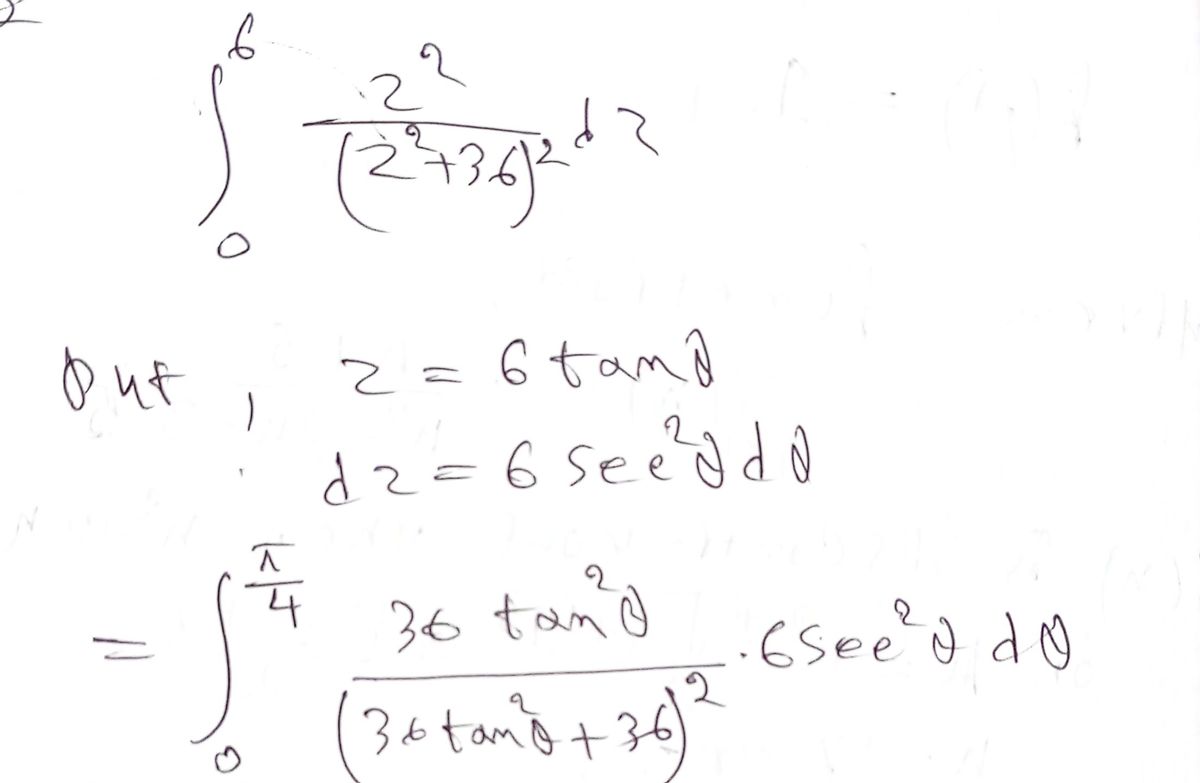 ∫₀⁶ z²/(z²+36)² dz
Put, z = 6 tanθ
dz = 6 sec²θ dθ
= ∫₀^(π/4) 36 tan²θ/(36 tan²θ + 36)² . 6 sec²θ dθ